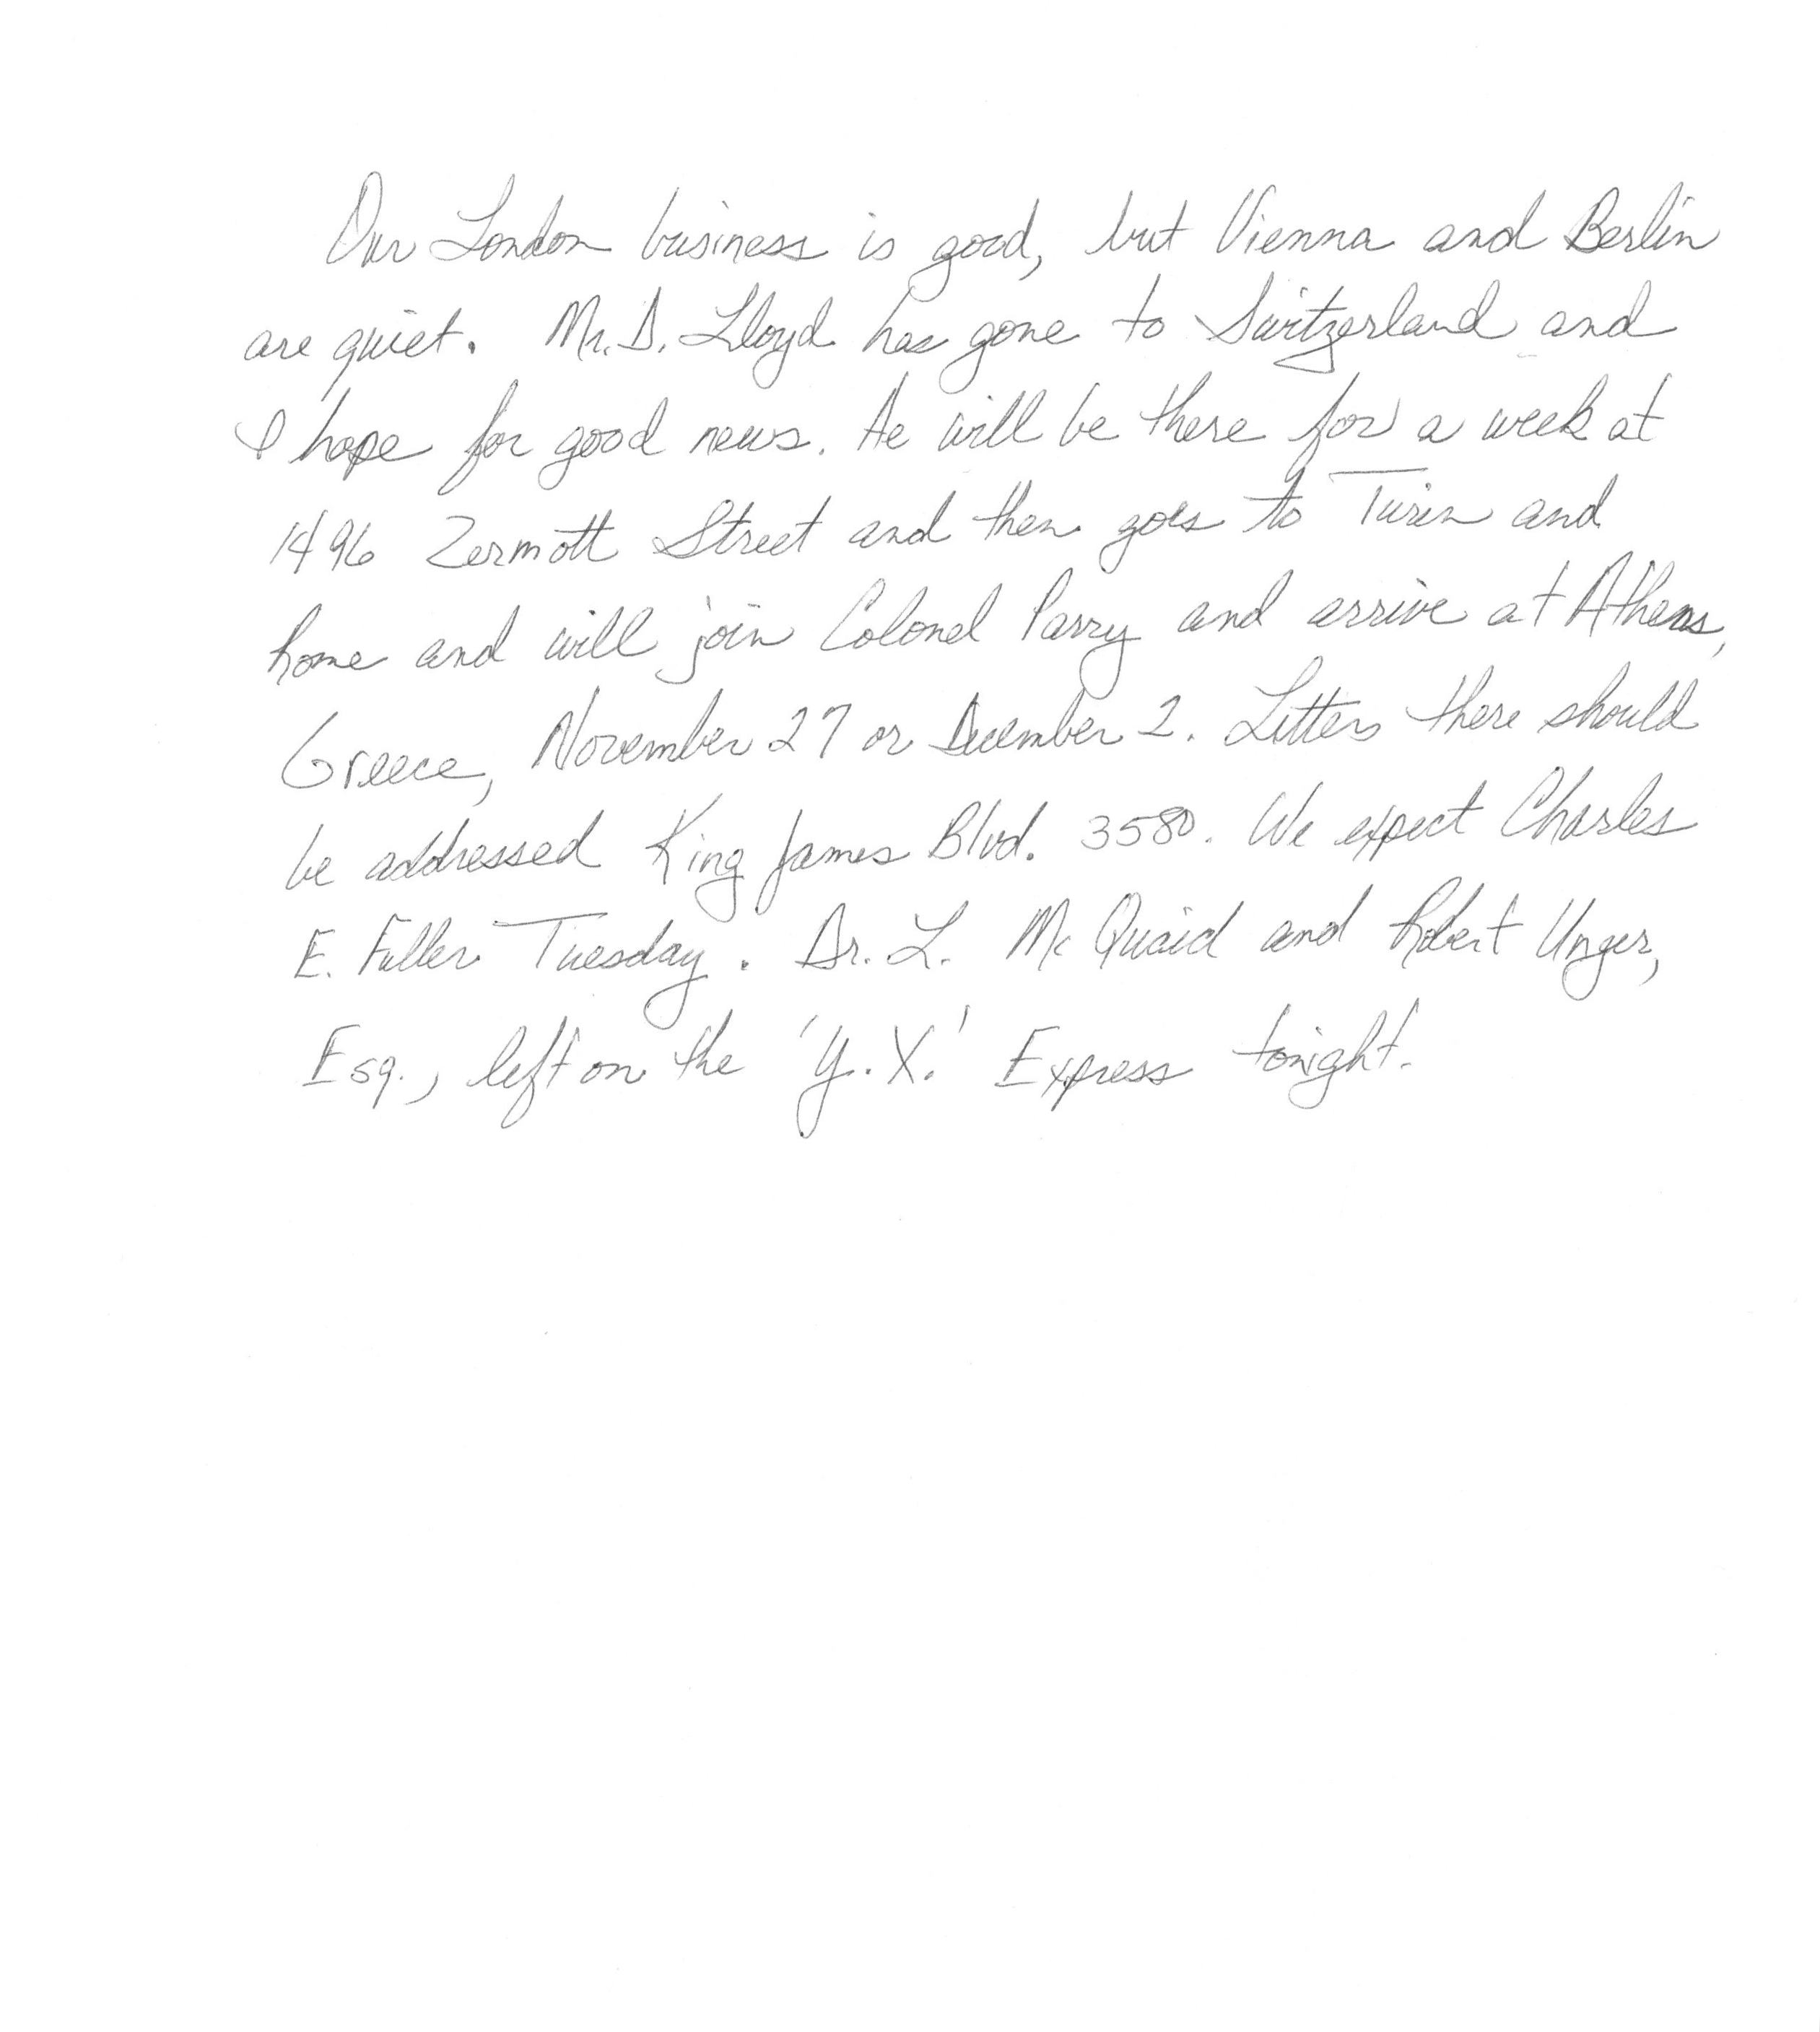 Our London business is good, but Vienna and Berlin
are quiet. Mr. D. Lloyd has gone to Switzerland and
I hope for good news. He will be there for a week at
1496 Zermott Street and then goes to Turin and
home and will join Colonel Parry and arrive at Athens,
Greece, November 27 or December 2. Letters there should
be addressed King James Blvd. 3580. We expect Charles
E. Fuller Tuesday. Dr. L. Mc Quaid and Robert Unger,
Esq., left on the 'Y.X.' Express tonight.